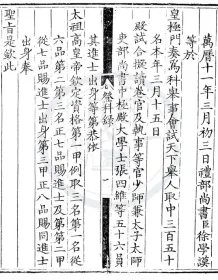 萬曆十一年三月初三日禮部尚書臣徐學謨
等於
皇極門奏爲科舉事會試天下舉人取中三百五十
名本年三月十五日
殿試合擬讀卷官及執事等官少師兼太子太師
吏部尚書中極殿大學士張四維等五十六員
其進士出身等第恭依
太祖高皇帝欽定資格第一甲例取三名第一名從
六品第二第三名正七品賜進士及第第二甲
從七品賜進士出身第三甲正八品賜同進士
出身奉
聖旨是欽此